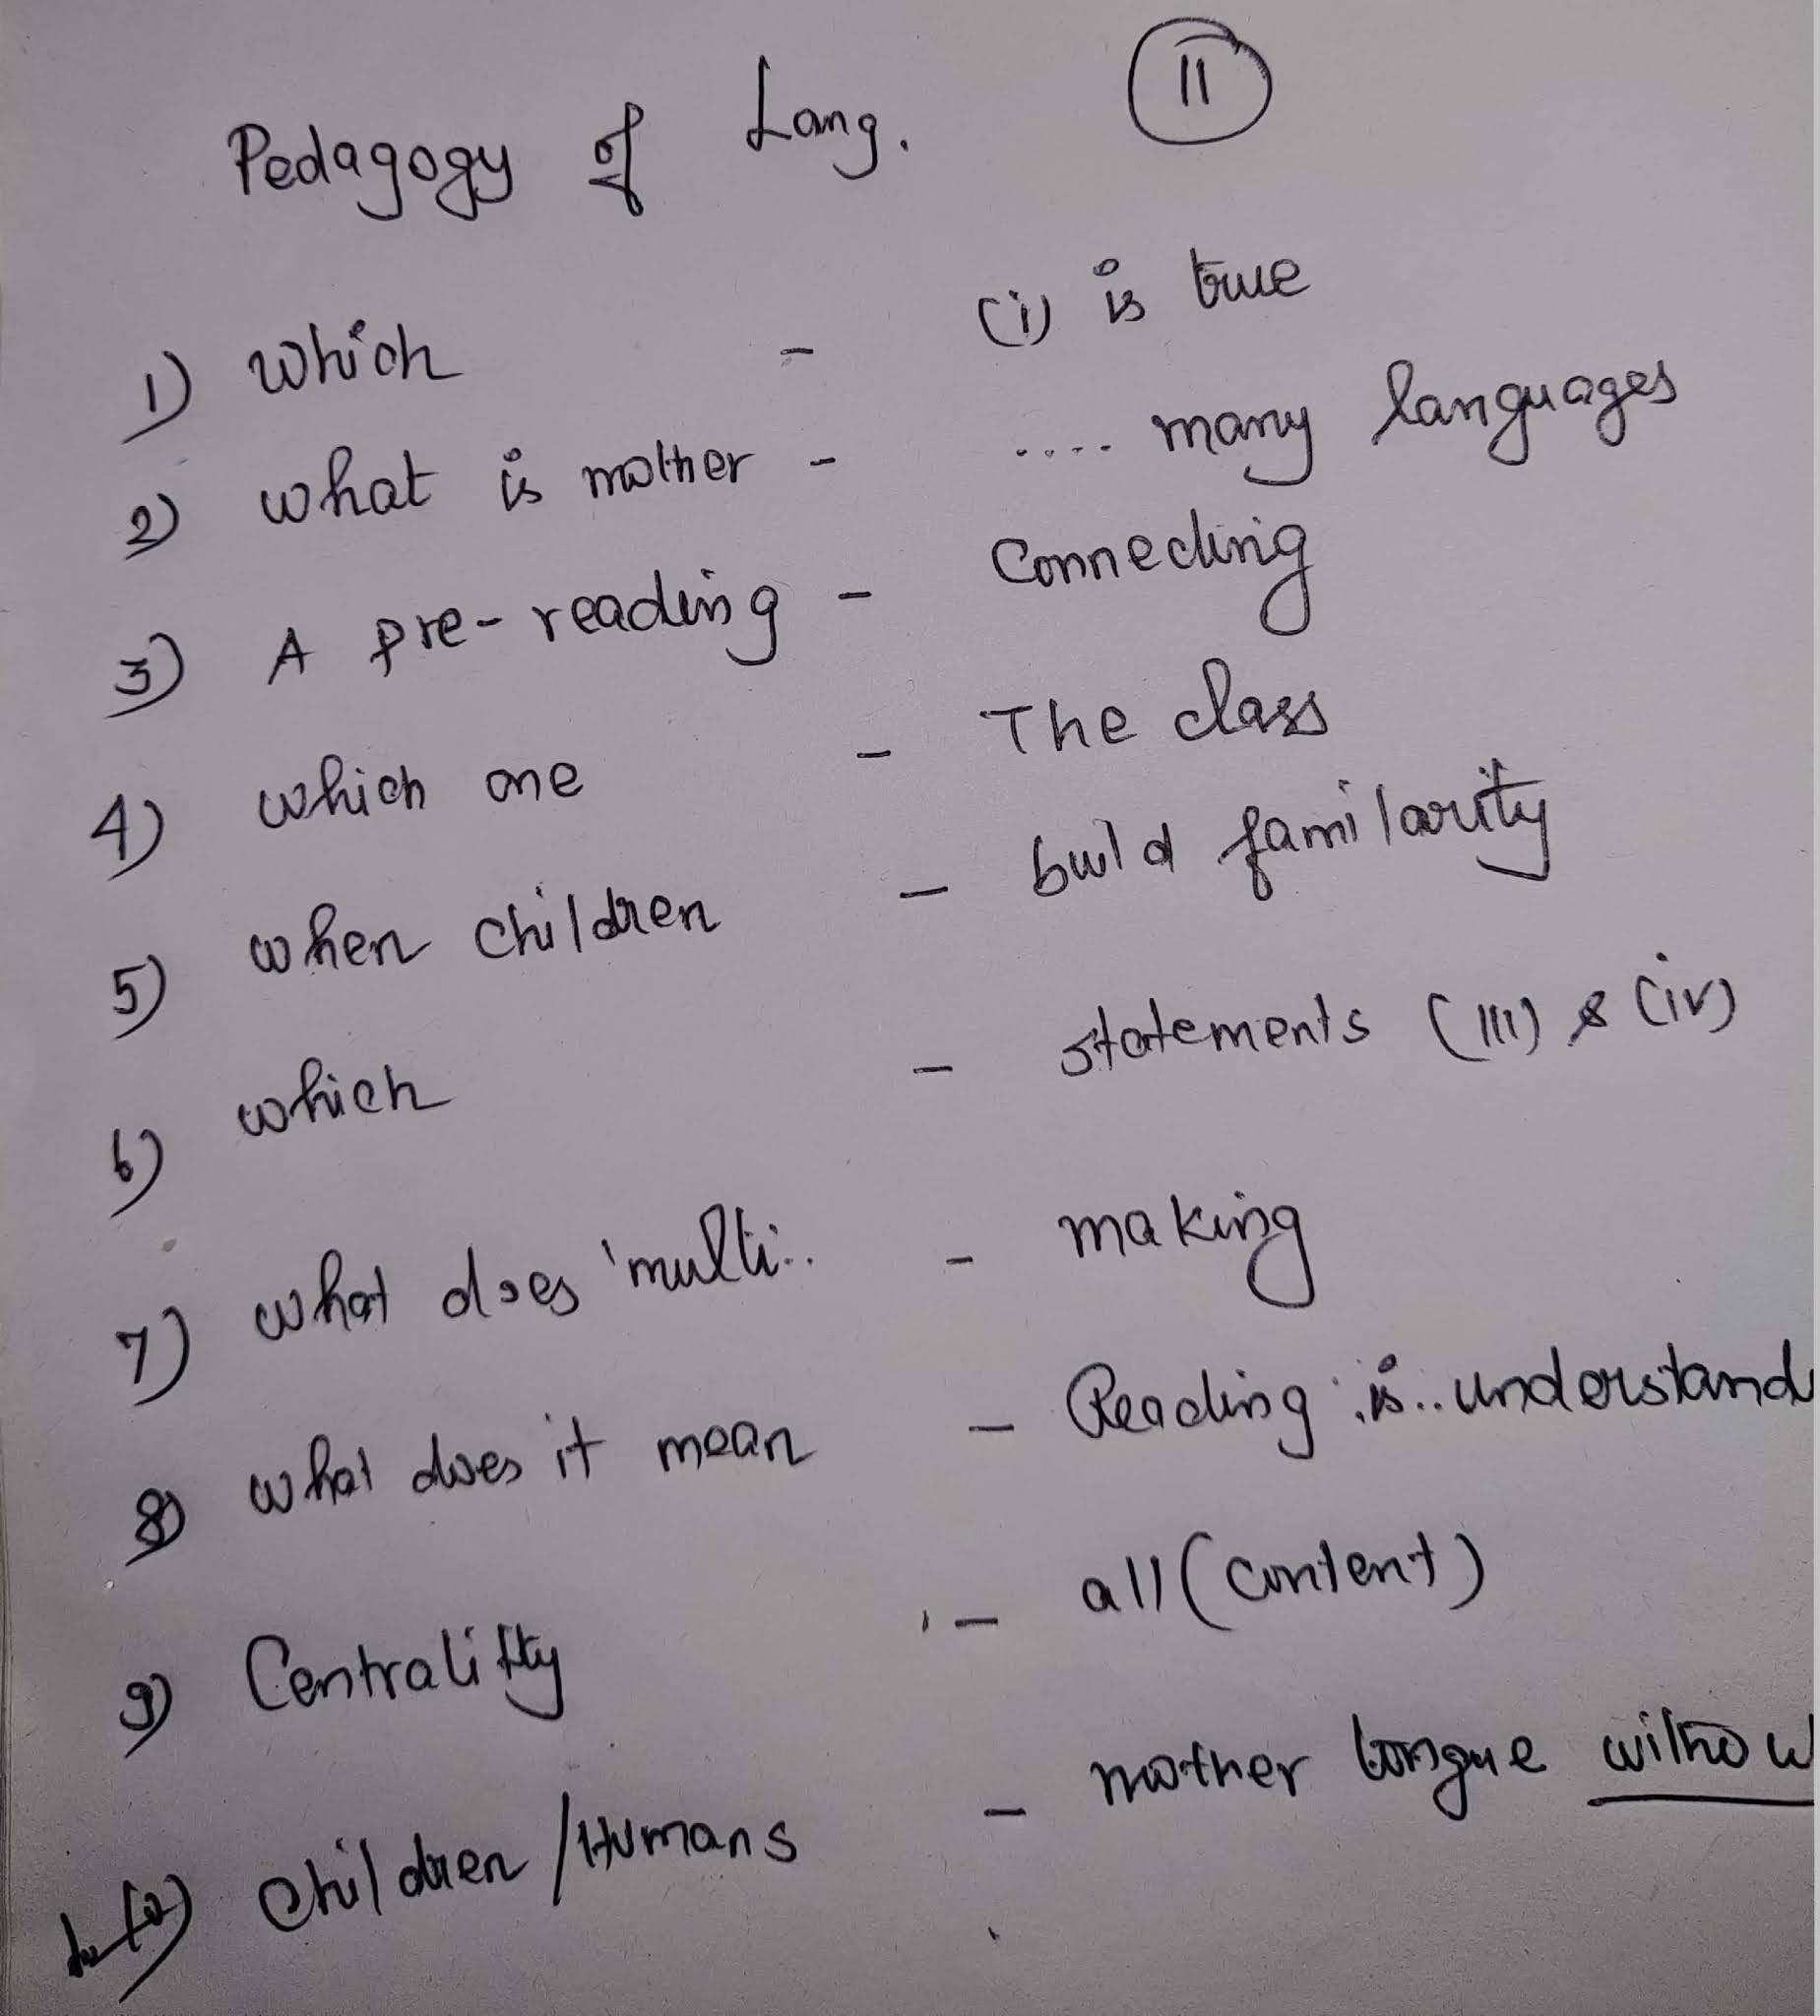 Pedagogy of Lang. 11
1) which - (i) is true
2) what is mother - .... many languages
3) A pre-reading - Connecting
4) which one - The class
5) when children - build familarity
6) which - statements (iii) & (iv)
7) what does 'multi.. - making
8) what does it mean - Reading is.. understand
9) Centralitty - all (content)
10) Children/Humans - mother tongue withou